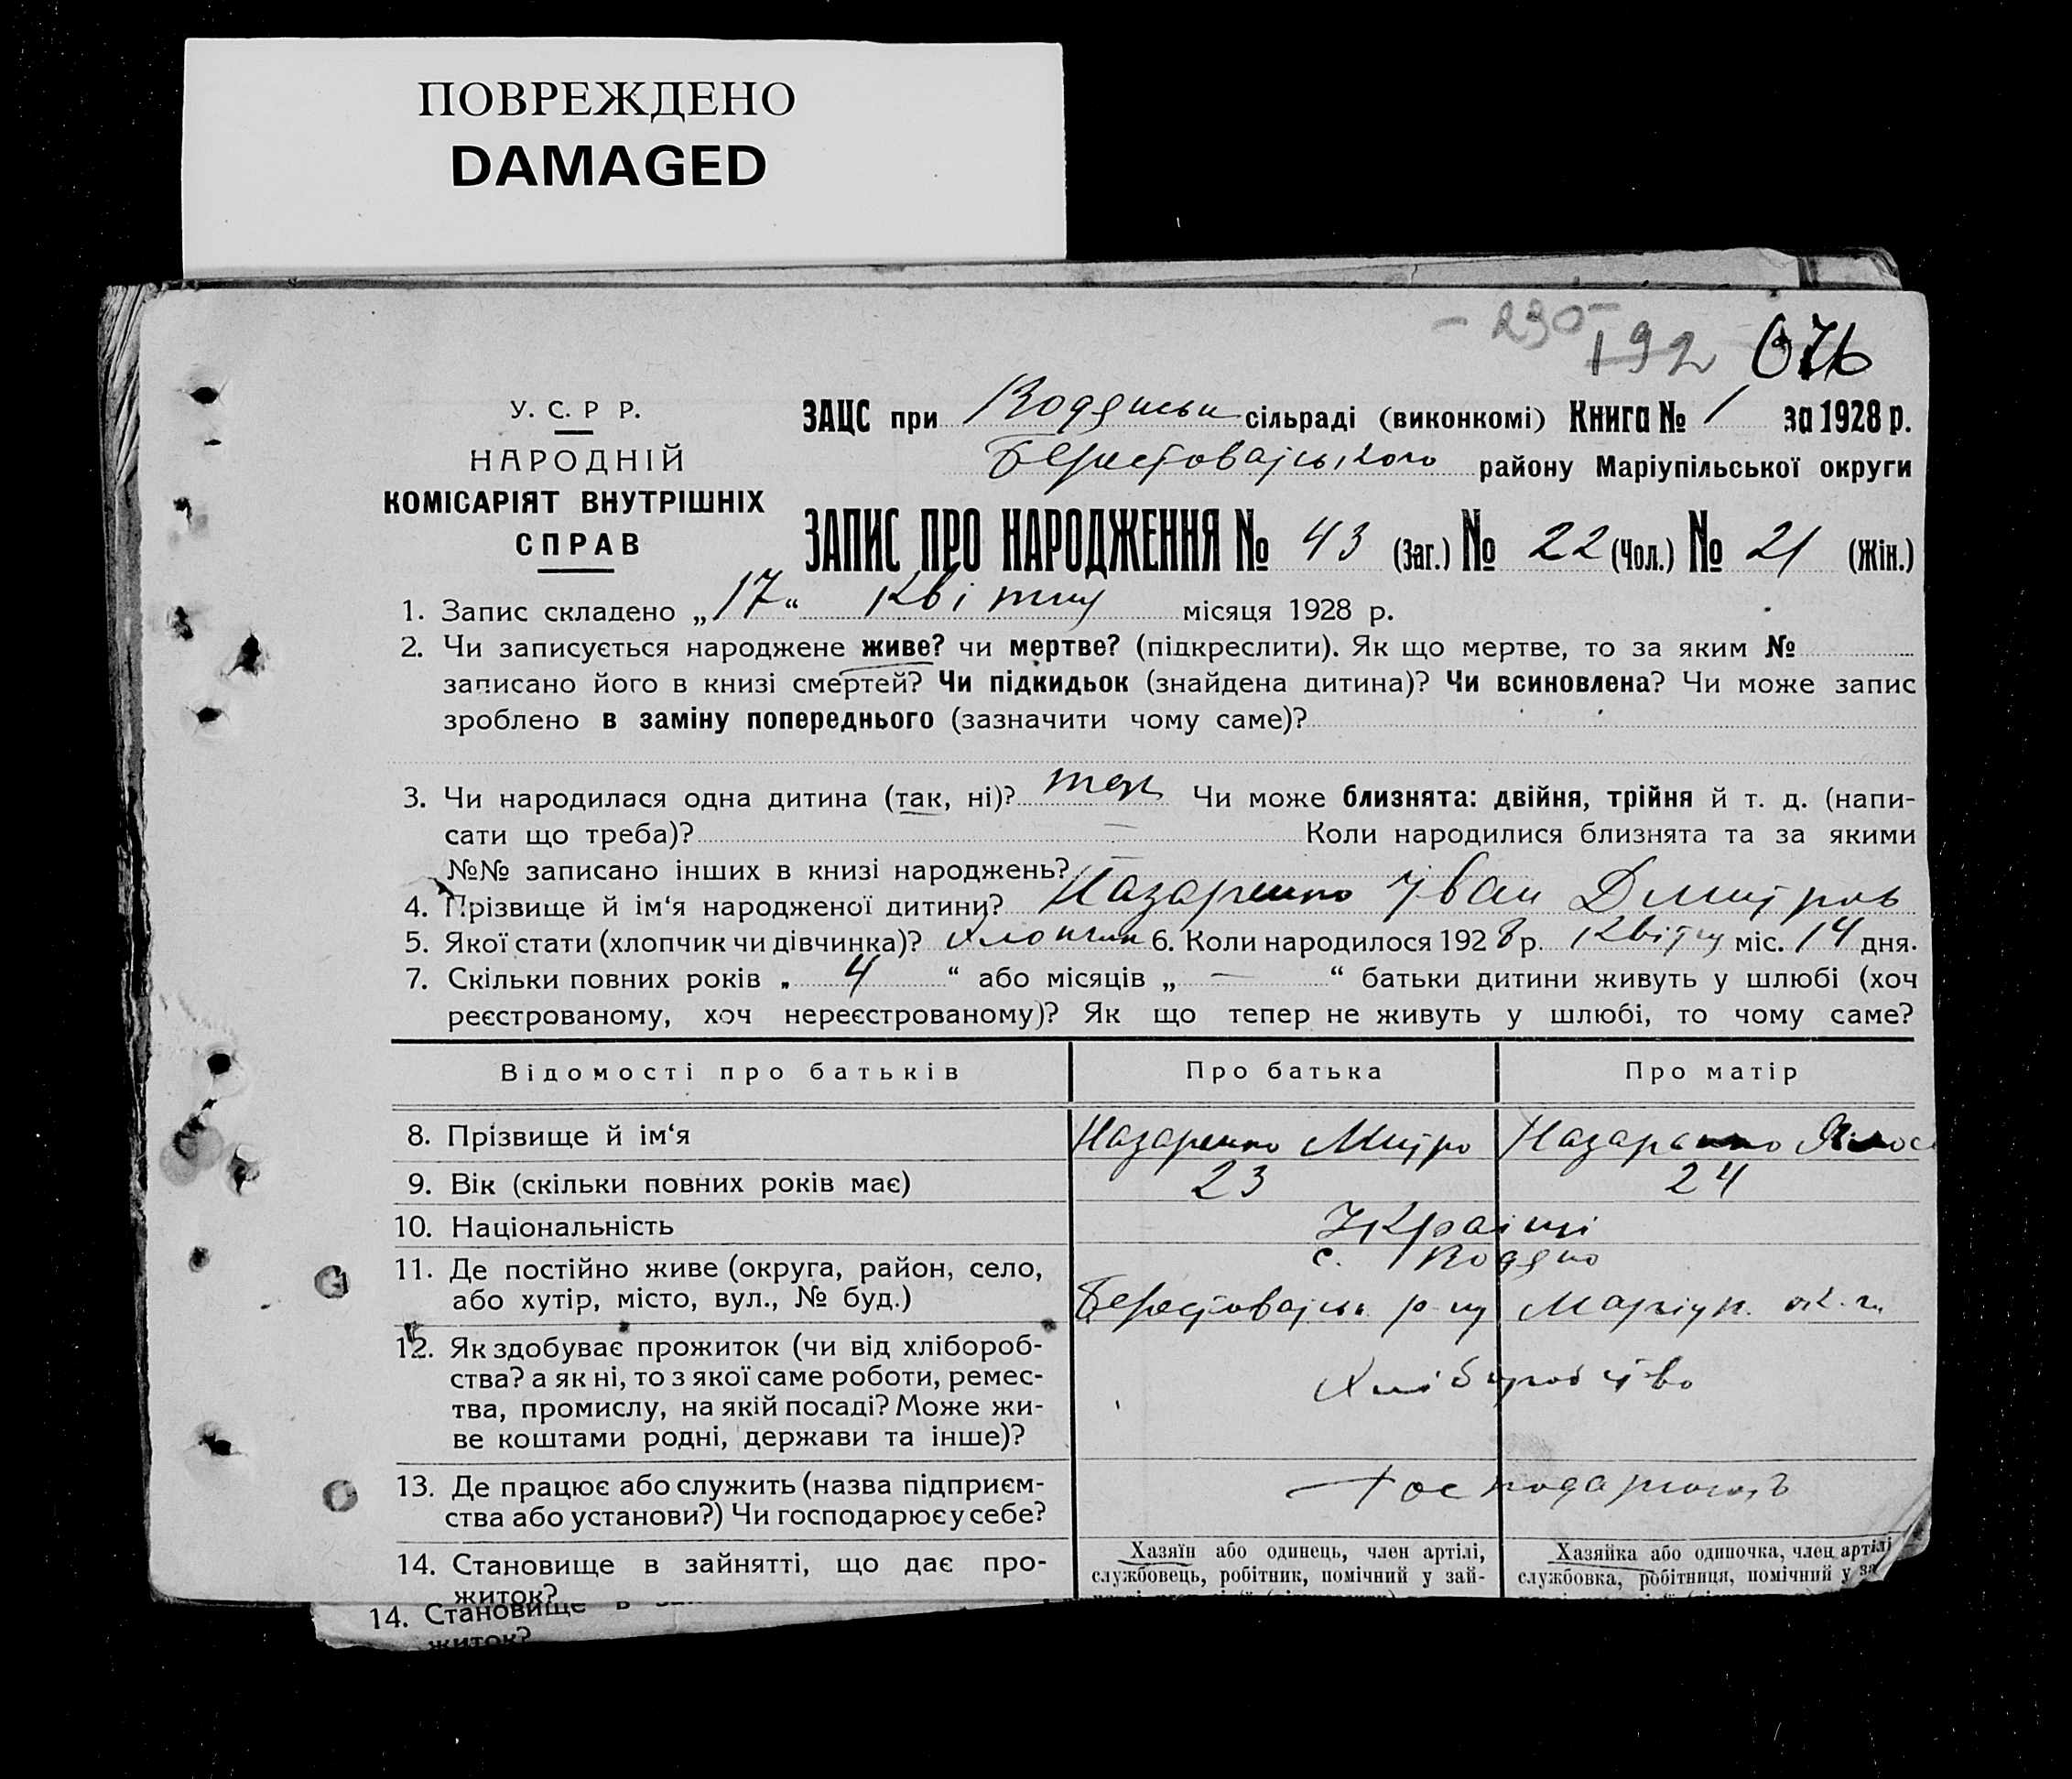 ПОВРЕЖДЕНО
DAMAGED
- 230 -
192 076
У. С. Р Р.
НАРОДНІЙ
КОМІСАРІЯТ ВНУТРІШНІХ
СПРАВ
ЗАЦС при Водянськ сільраді (виконкомі) Книга № 1 за 1928 р.
Берестоватського району Маріупільської округи
ЗАПИС ПРО НАРОДЖЕННЯ № 43 (Заг.) № 22 (Чол.) № 21 (Жін.)
1. Запис складено „17“ квітня місяця 1928 р.
2. Чи записується народжене живе? чи мертве? (підкреслити). Як що мертве, то за яким №
записано його в книзі смертей? Чи підкидьок (знайдена дитина)? Чи всиновлена? Чи може запис
зроблено в заміну попереднього (зазначити чому саме)?
3. Чи народилася одна дитина (так, ні)? так Чи може близнята: двійня, трійня й т. д. (напи-
сати що треба)? — Коли народилися близнята та за якими
№№ записано інших в книзі народжень? —
4. Прізвище й ім‘я народженої дитини? Назаренко Іван Дмитров
5. Якої стати (хлопчик чи дівчинка)? хлопчик 6. Коли народилося 1928 р. квітня міс. 14 дня.
7. Скільки повних років „ 4 “ або місяців „ — “ батьки дитини живуть у шлюбі (хоч
реєстрованому, хоч нереєстрованому)? Як що тепер не живуть у шлюбі, то чому саме?
Відомості про батьків Про батька Про матір
8. Прізвище й ім‘я Назаренко Митро Назаренко
9. Вік (скільки повних років має) 23 24
10. Національність Українці
11. Де постійно живе (округа, район, село, с. Водяно
або хутір, місто, вул., № буд.) Берестоватськ. р-ну Маріуп. ок-ги
12. Як здобуває прожиток (чи від хлібороб-
ства? а як ні, то з якої саме роботи, ремес- Хліборобство
тва, промислу, на якій посаді? Може жи-
ве коштами родні, держави та інше)?
13. Де працює або служить (назва підприєм- Господарюють
ства або установи?) Чи господарює у себе?
14. Становище в зайнятті, що дає про- Хазяїн або одинець, член артілі, Хазяйка або одиночка, член артілі
житок? службовець, робітник, помічний у зай- службовка, робітниця, помічний у за
14. Становище в
житок?